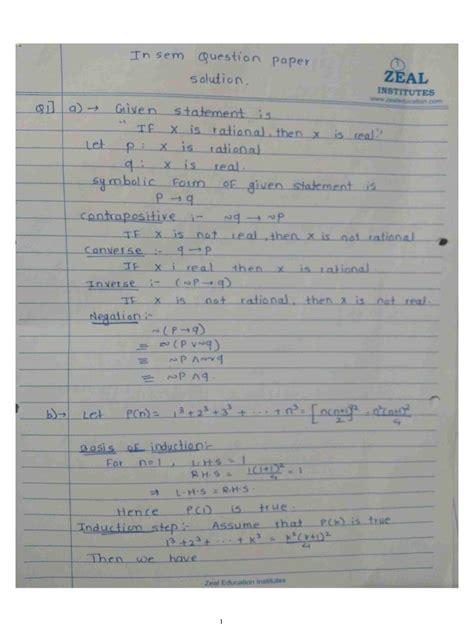 In sem Question paper
solution.
①
ZEAL
INSTITUTES
www.zealeducation.com
Q1] a) → Given statement is
"IF x is rational, then x is real"
Let p: x is rational
q: x is real.
symbolic form of given statement is
P → q
contrapositive :- ~q → ~P
IF x is not real, then x is not rational
Converse :- q → P
IF x i real then x is rational
Inverse :- (~P → q)
IF x is not rational, then x is not real.
Negation :-
~(P → q)
≡ ~(P ∨ ~q)
≡ ~P ∧ ~~q
≡ ~P ∧ q.
b) → Let P(n) = 1³+2³+3³+ ··· +n³ = [n(n+1)/2]² = n²(n+1)²/4
Basis of induction:-
For n=1, L.H.S = 1
R.H.S = 1(1+1)²/4 = 1
⇒ L.H.S = R.H.S.
Hence P(1) is true.
Induction step:- Assume that P(k) is true
1³+2³+ ··· +k³ = k²(k+1)²/4
Then we have
Zeal Education Institutes
1